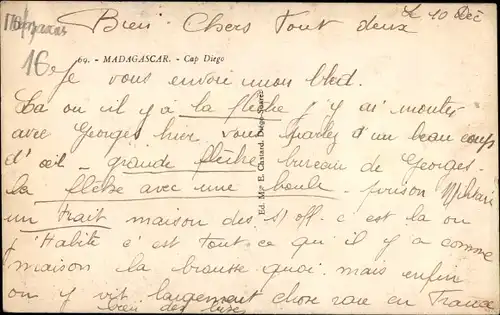 Le 10 Déc
Bien Chers Tout deux
16e
69. - MADAGASCAR. - Cap Diego
Je vous envoie mon bled.
La ou il y a la flèche j'y ai monter
avec Georges hier, vous parlez d'un beau coup
d'œil - grande flèche bureau de Georges -
la flèche avec une boule - prison Militaire
un trait maison des S/off. c'est la ou
j'Habite c'est tout ce qu'il y a comme
maison la brousse quoi, mais enfin
on y vit largement chose rare en France
bien des bises
Ed. Mme E. Chatard, Diego-Suarez